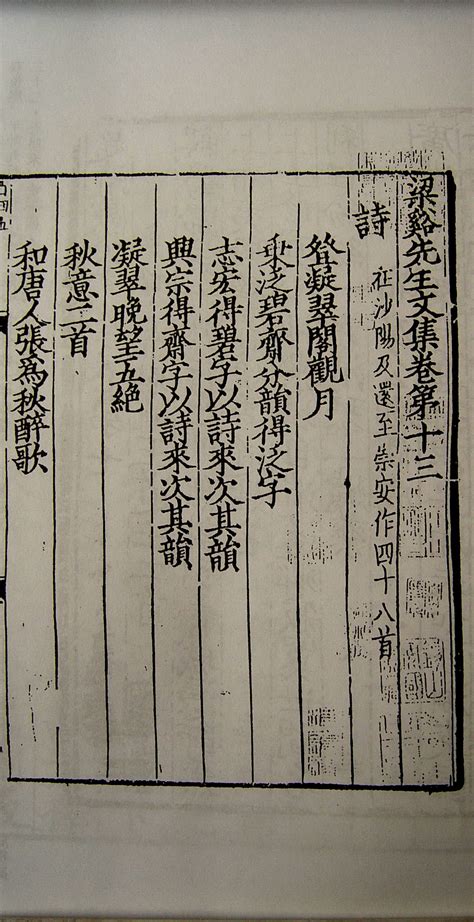 梁谿先生文集卷第十三
詩 在沙陽及還至崇安作四十八首
登凝翠閣觀月
乗泛碧齋分韻得泛字
志宏得碧字以詩來次其韻
興宗得齋字以詩來次其韻
凝翠晚望五絶
秋意二首
和唐人張爲秋醉歌